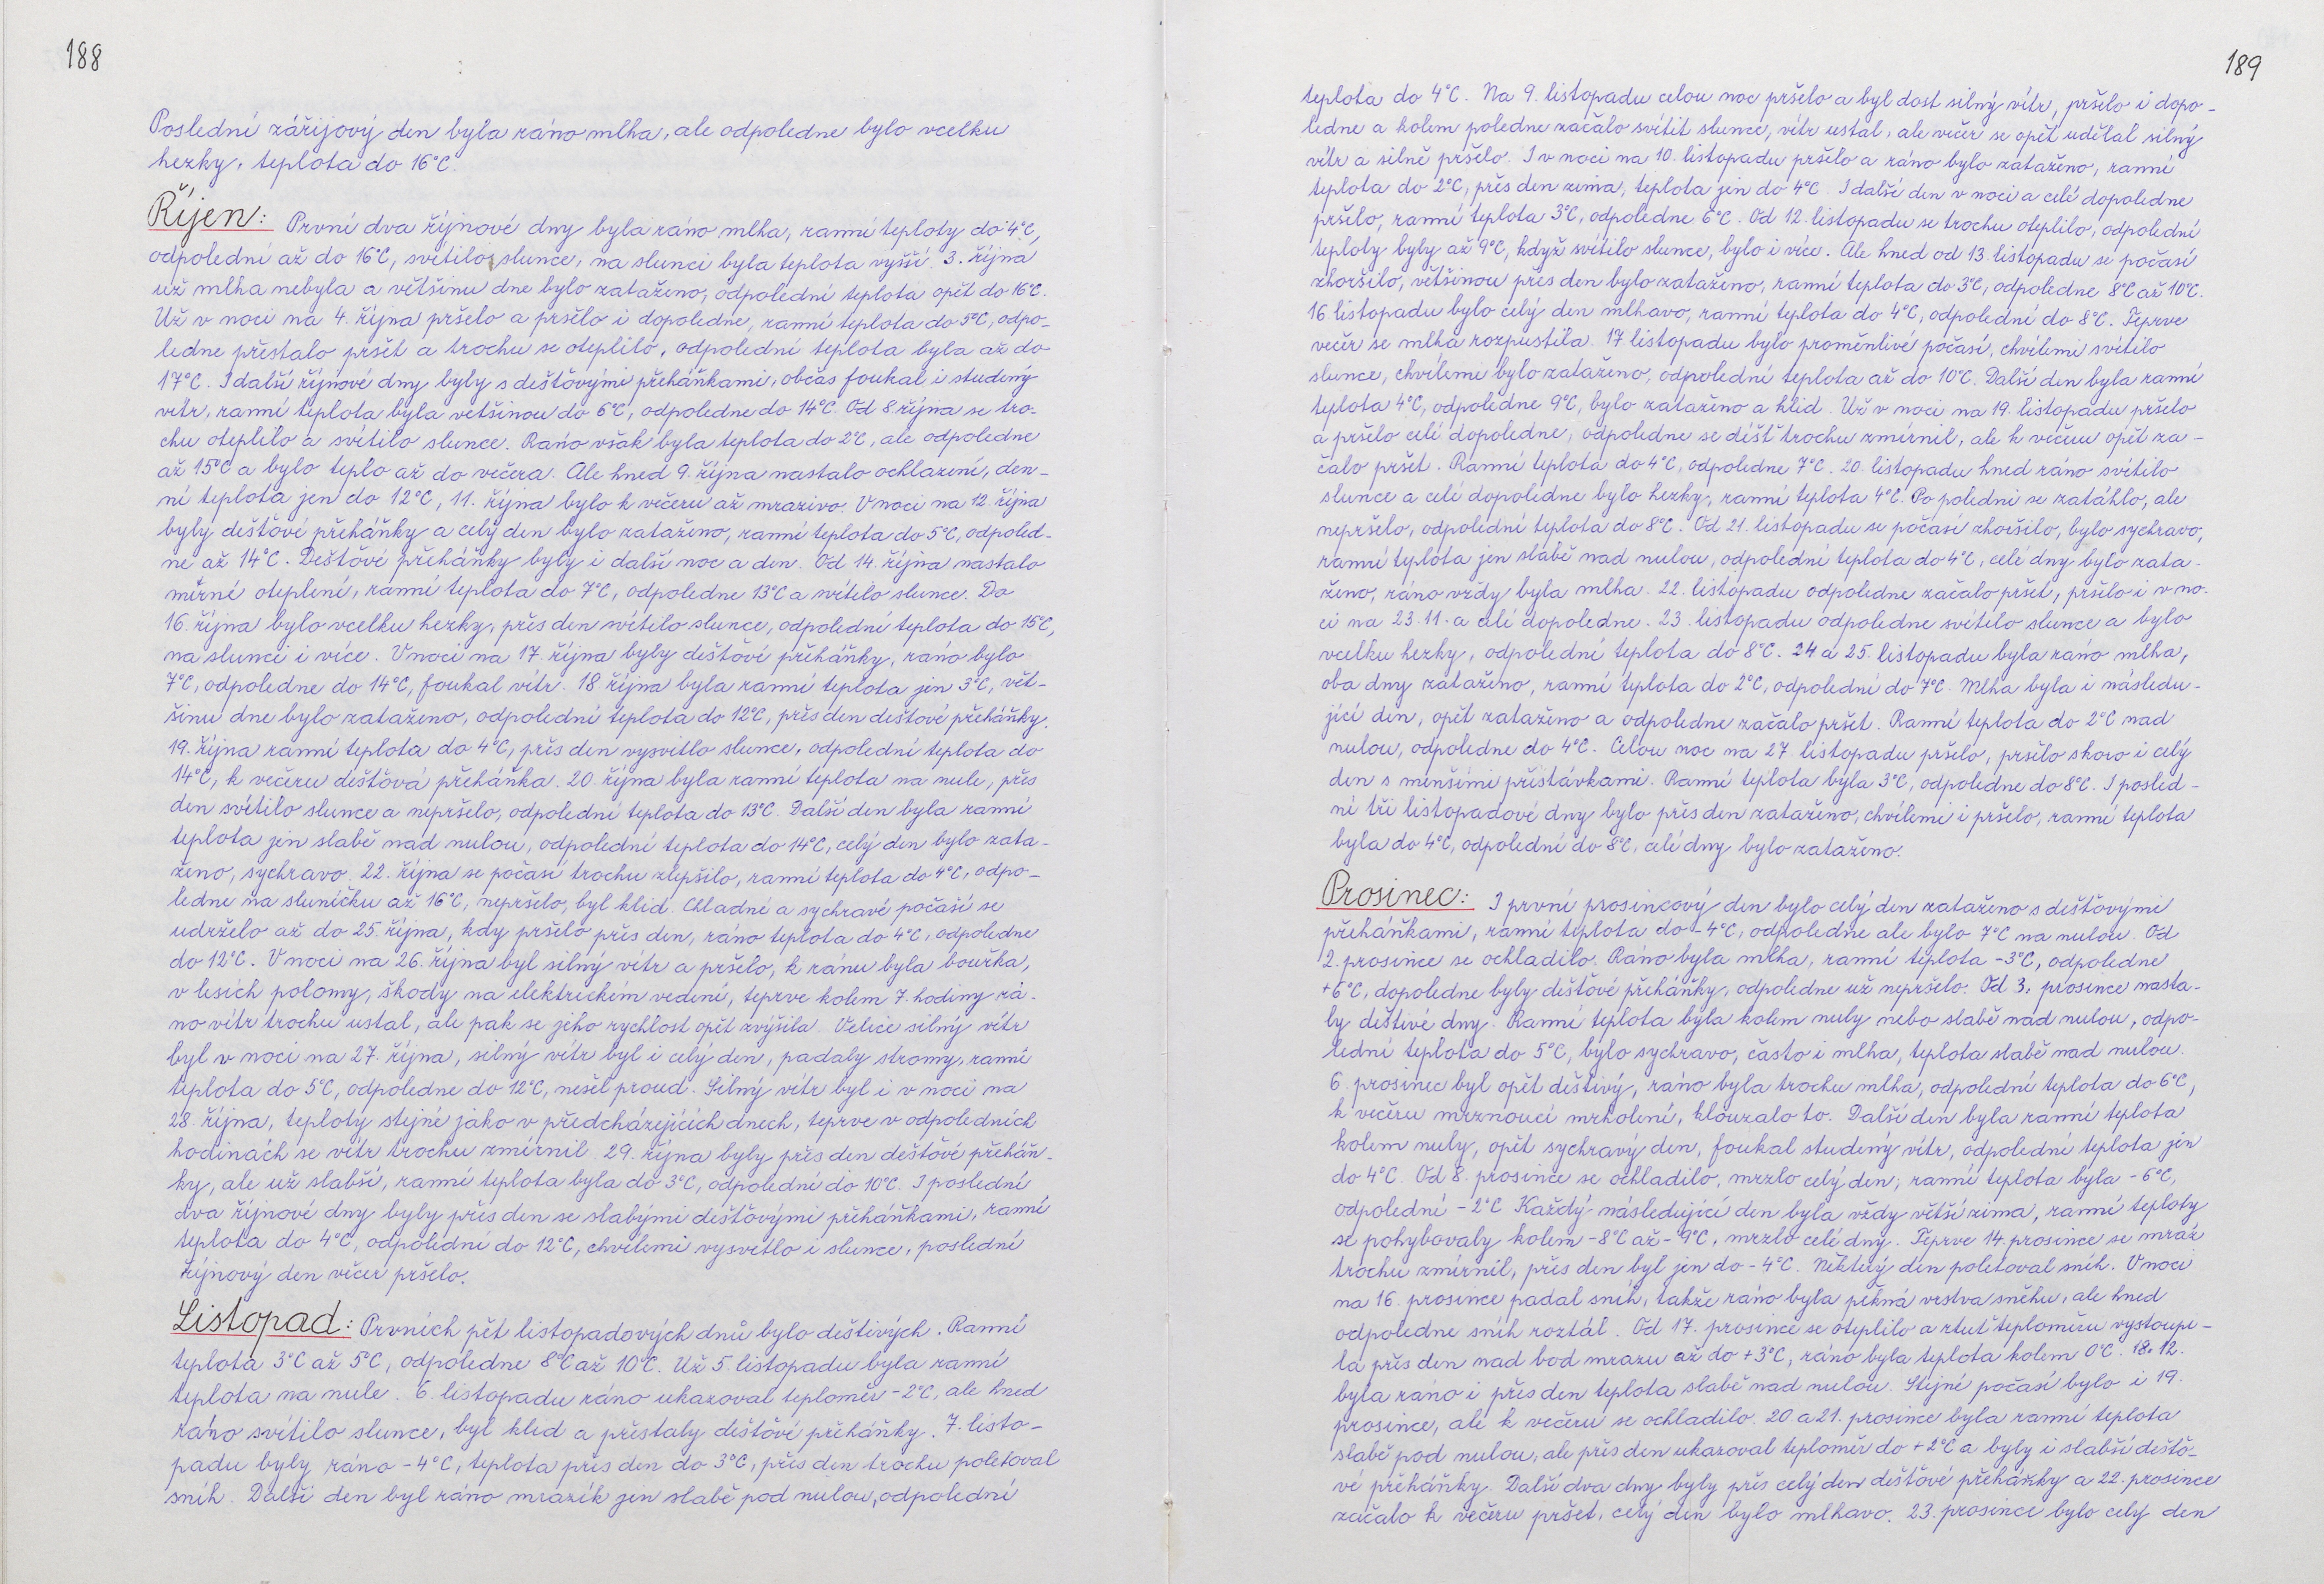 188
Poslední zářijový den byla ráno mlha, ale odpoledne bylo vcelku
hezky, teplota do 16°C.
Říjen: První dva říjnové dny byla ráno mlha, ranní teploty do 4°C,
odpolední až do 16°C, svítilo slunce, na slunci byla teplota vyšší. 3. října
už mlha nebyla a většinu dne bylo zataženo, odpolední teplota opět do 16°C.
Už v noci na 4. října pršelo a pršelo i dopoledne, ranní teplota do 5°C, odpo-
ledne přestalo pršet a trochu se oteplilo, odpolední teplota byla až do
17°C. I další říjnové dny byly s dešťovými přeháňkami, občas foukal i studený
vítr, ranní teplota byla většinou do 6°C, odpoledne do 14°C. Od 8. října se tro-
chu oteplilo a svítilo slunce. Ráno však byla teplota do 2°C, ale odpoledne
až 15°C a bylo teplo až do večera. Ale hned 9. října nastalo ochlazení, den-
ní teplota jen do 12°C, 11. října bylo k večeru až mrazivo. V noci na 12. října
byly dešťové přeháňky a celý den bylo zataženo, ranní teplota do 5°C, odpoled-
ne až 14°C. Dešťové přeháňky byly i další noc a den. Od 14. října nastalo
mírné oteplení, ranní teplota do 7°C, odpoledne 13°C a svítilo slunce. Do
16. října bylo vcelku hezky, přes den svítilo slunce, odpolední teplota do 15°C,
na slunci i více. V noci na 17. října byly dešťové přeháňky, ráno bylo
7°C, odpoledne do 14°C, foukal vítr. 18 října byla ranní teplota jen 3°C, vět-
šinu dne bylo zataženo, odpolední teplota do 12°C, přes den dešťové přeháňky.
19. října ranní teplota do 4°C, přes den vysvitlo slunce, odpolední teplota do
14°C, k večeru dešťová přeháňka. 20. října byla ranní teplota na nule, přes
den svítilo slunce a nepršelo, odpolední teplota do 13°C. Další den byla ranní
teplota jen slabě nad nulou, odpolední teplota do 14°C, celý den bylo zata-
ženo, sychravo. 22. října se počasí trochu zlepšilo, ranní teplota do 4°C, odpo-
ledne na sluníčku až 16°C, nepršelo, byl klid. Chladné a sychravé počasí se
udrželo až do 25. října, kdy pršelo přes den, ráno teplota do 4°C, odpoledne
do 12°C. V noci na 26. října byl silný vítr a pršelo, k ránu byla bouřka,
v lesích polomy, škody na elektrickém vedení, teprve kolem 7. hodiny rá-
no vítr trochu ustal, ale pak se jeho rychlost opět zvýšila. Velice silný vítr
byl v noci na 27. října, silný vítr byl i celý den, padaly stromy, ranní
teplota do 5°C, odpoledne do 12°C, nešel proud. Silný vítr byl i v noci na
28. října, teploty stejné jako v předcházejících dnech, teprve v odpoledních
hodinách se vítr trochu zmírnil. 29. října byly přes den dešťové přeháň-
ky, ale už slabší, ranní teplota byla do 3°C, odpolední do 10°C. I poslední
dva říjnové dny byly přes den se slabými dešťovými přeháňkami, ranní
teplota do 4°C, odpolední do 12°C, chvílemi vysvitlo i slunce, poslední
říjnový den večer pršelo.
Listopad: Prvních pět listopadových dnů bylo deštivých. Ranní
teplota 3°C až 5°C, odpoledne 8°C až 10°C. Už 5. listopadu byla ranní
teplota na nule. 6. listopadu ráno ukazoval teploměr -2°C, ale hned
ráno svítilo slunce, byl klid a přestaly dešťové přeháňky. 7. listo-
padu byly ráno -4°C, teplota přes den do 3°C, přes den trochu poletoval
sníh. Další den byl ráno mrazík jen slabě pod nulou, odpolední
189
teplota do 4°C. Na 9. listopadu celou noc pršelo a byl dost silný vítr, pršelo i dopo-
ledne a kolem poledne začalo svítit slunce, vítr ustal, ale večer se opět udělal silný
vítr a silně pršelo. I v noci na 10. listopadu pršelo a ráno bylo zataženo, ranní
teplota do 2°C, přes den zima, teplota jen do 4°C. I další den v noci a celé dopoledne
pršelo, ranní teplota 3°C, odpoledne 6°C. Od 12. listopadu se trochu oteplilo, odpolední
teploty byly až 9°C, když svítilo slunce, bylo i více. Ale hned od 13. listopadu se počasí
zhoršilo, většinou přes den bylo zataženo, ranní teplota do 3°C, odpoledne 8°C až 10°C.
16 listopadu bylo celý den mlhavo, ranní teplota do 4°C, odpolední do 8°C. Teprve
večer se mlha rozpustila. 17 listopadu bylo proměnlivé počasí, chvílemi svítilo
slunce, chvílemi bylo zataženo, odpolední teplota až do 10°C. Další den byla ranní
teplota 4°C, odpoledne 9°C, bylo zataženo a klid. Už v noci na 19. listopadu pršelo
a pršelo celé dopoledne, odpoledne se déšť trochu zmírnil, ale k večeru opět za-
čalo pršet. Ranní teplota do 4°C, odpoledne 7°C. 20. listopadu hned ráno svítilo
slunce a celé dopoledne bylo hezky, ranní teplota 4°C. Po poledni se zatáhlo, ale
nepršelo, odpolední teplota do 8°C. Od 21. listopadu se počasí zhoršilo, bylo sychravo,
ranní teplota jen slabě nad nulou, odpolední teplota do 4°C, celé dny bylo zata-
ženo, ráno vždy byla mlha. 22. listopadu odpoledne začalo pršet, pršelo i v no-
ci na 23.11. a celé dopoledne. 23. listopadu odpoledne svítilo slunce a bylo
vcelku hezky, odpolední teplota do 8°C. 24 a 25. listopadu byla ráno mlha,
oba dny zataženo, ranní teplota do 2°C, odpolední do 7°C. Mlha byla i následu-
jící den, opět zataženo a odpoledne začalo pršet. Ranní teplota do 2°C nad
nulou, odpoledne do 4°C. Celou noc na 27 listopadu pršelo, pršelo skoro i celý
den s menšími přestávkami. Ranní teplota byla 3°C, odpoledne do 8°C. I posled-
ní tři listopadové dny bylo přes den zataženo, chvílemi i pršelo, ranní teplota
byla do 4°C, odpolední do 8°C, celé dny bylo zataženo.
Prosinec: I první prosincový den bylo celý den zataženo s dešťovými
přeháňkami, ranní teplota do -4°C, odpoledne ale bylo 7°C na nulou. Od
2. prosince se ochladilo. Ráno byla mlha, ranní teplota -3°C, odpoledne
+6°C, dopoledne byly dešťové přeháňky, odpoledne už nepršelo. Od 3. prosince nasta-
ly deštivé dny. Ranní teplota byla kolem nuly nebo slabě nad nulou, odpo-
lední teplota do 5°C, bylo sychravo, často i mlha, teplota slabě nad nulou.
6. prosinec byl opět deštivý, ráno byla trochu mlha, odpolední teplota do 6°C,
k večeru mrznoucí mrholení, klouzalo to. Další den byla ranní teplota
kolem nuly, opět sychravý den, foukal studený vítr, odpolední teplota jen
do 4°C. Od 8. prosince se ochladilo, mrzlo celý den, ranní teplota byla -6°C,
odpolední -2°C Každý následující den byla vždy větší zima, ranní teploty
se pohybovaly kolem -8°C až -9°C, mrzlo celé dny. Teprve 14. prosince se mráz
trochu zmírnil, přes den byl jen do -4°C. Některý den poletoval sníh. V noci
na 16. prosince padal sníh, takže ráno byla pěkná vrstva sněhu, ale hned
odpoledne sníh roztál. Od 17. prosince se oteplilo a rtuť teploměru vystoupi-
la přes den nad bod mrazu až do +3°C, ráno byla teplota kolem 0°C. 18.12.
byla ráno i přes den teplota slabě nad nulou. Stejné počasí bylo i 19.
prosince, ale k večeru se ochladilo. 20 a 21. prosince byla ranní teplota
slabě pod nulou, ale přes den ukazoval teploměr do +2°C a byly i slabší dešťo-
vé přeháňky. Další dva dny byly přes celý den dešťové přeháňky a 22. prosince
začalo k večeru pršet, celý den bylo mlhavo. 23. prosince bylo celý den